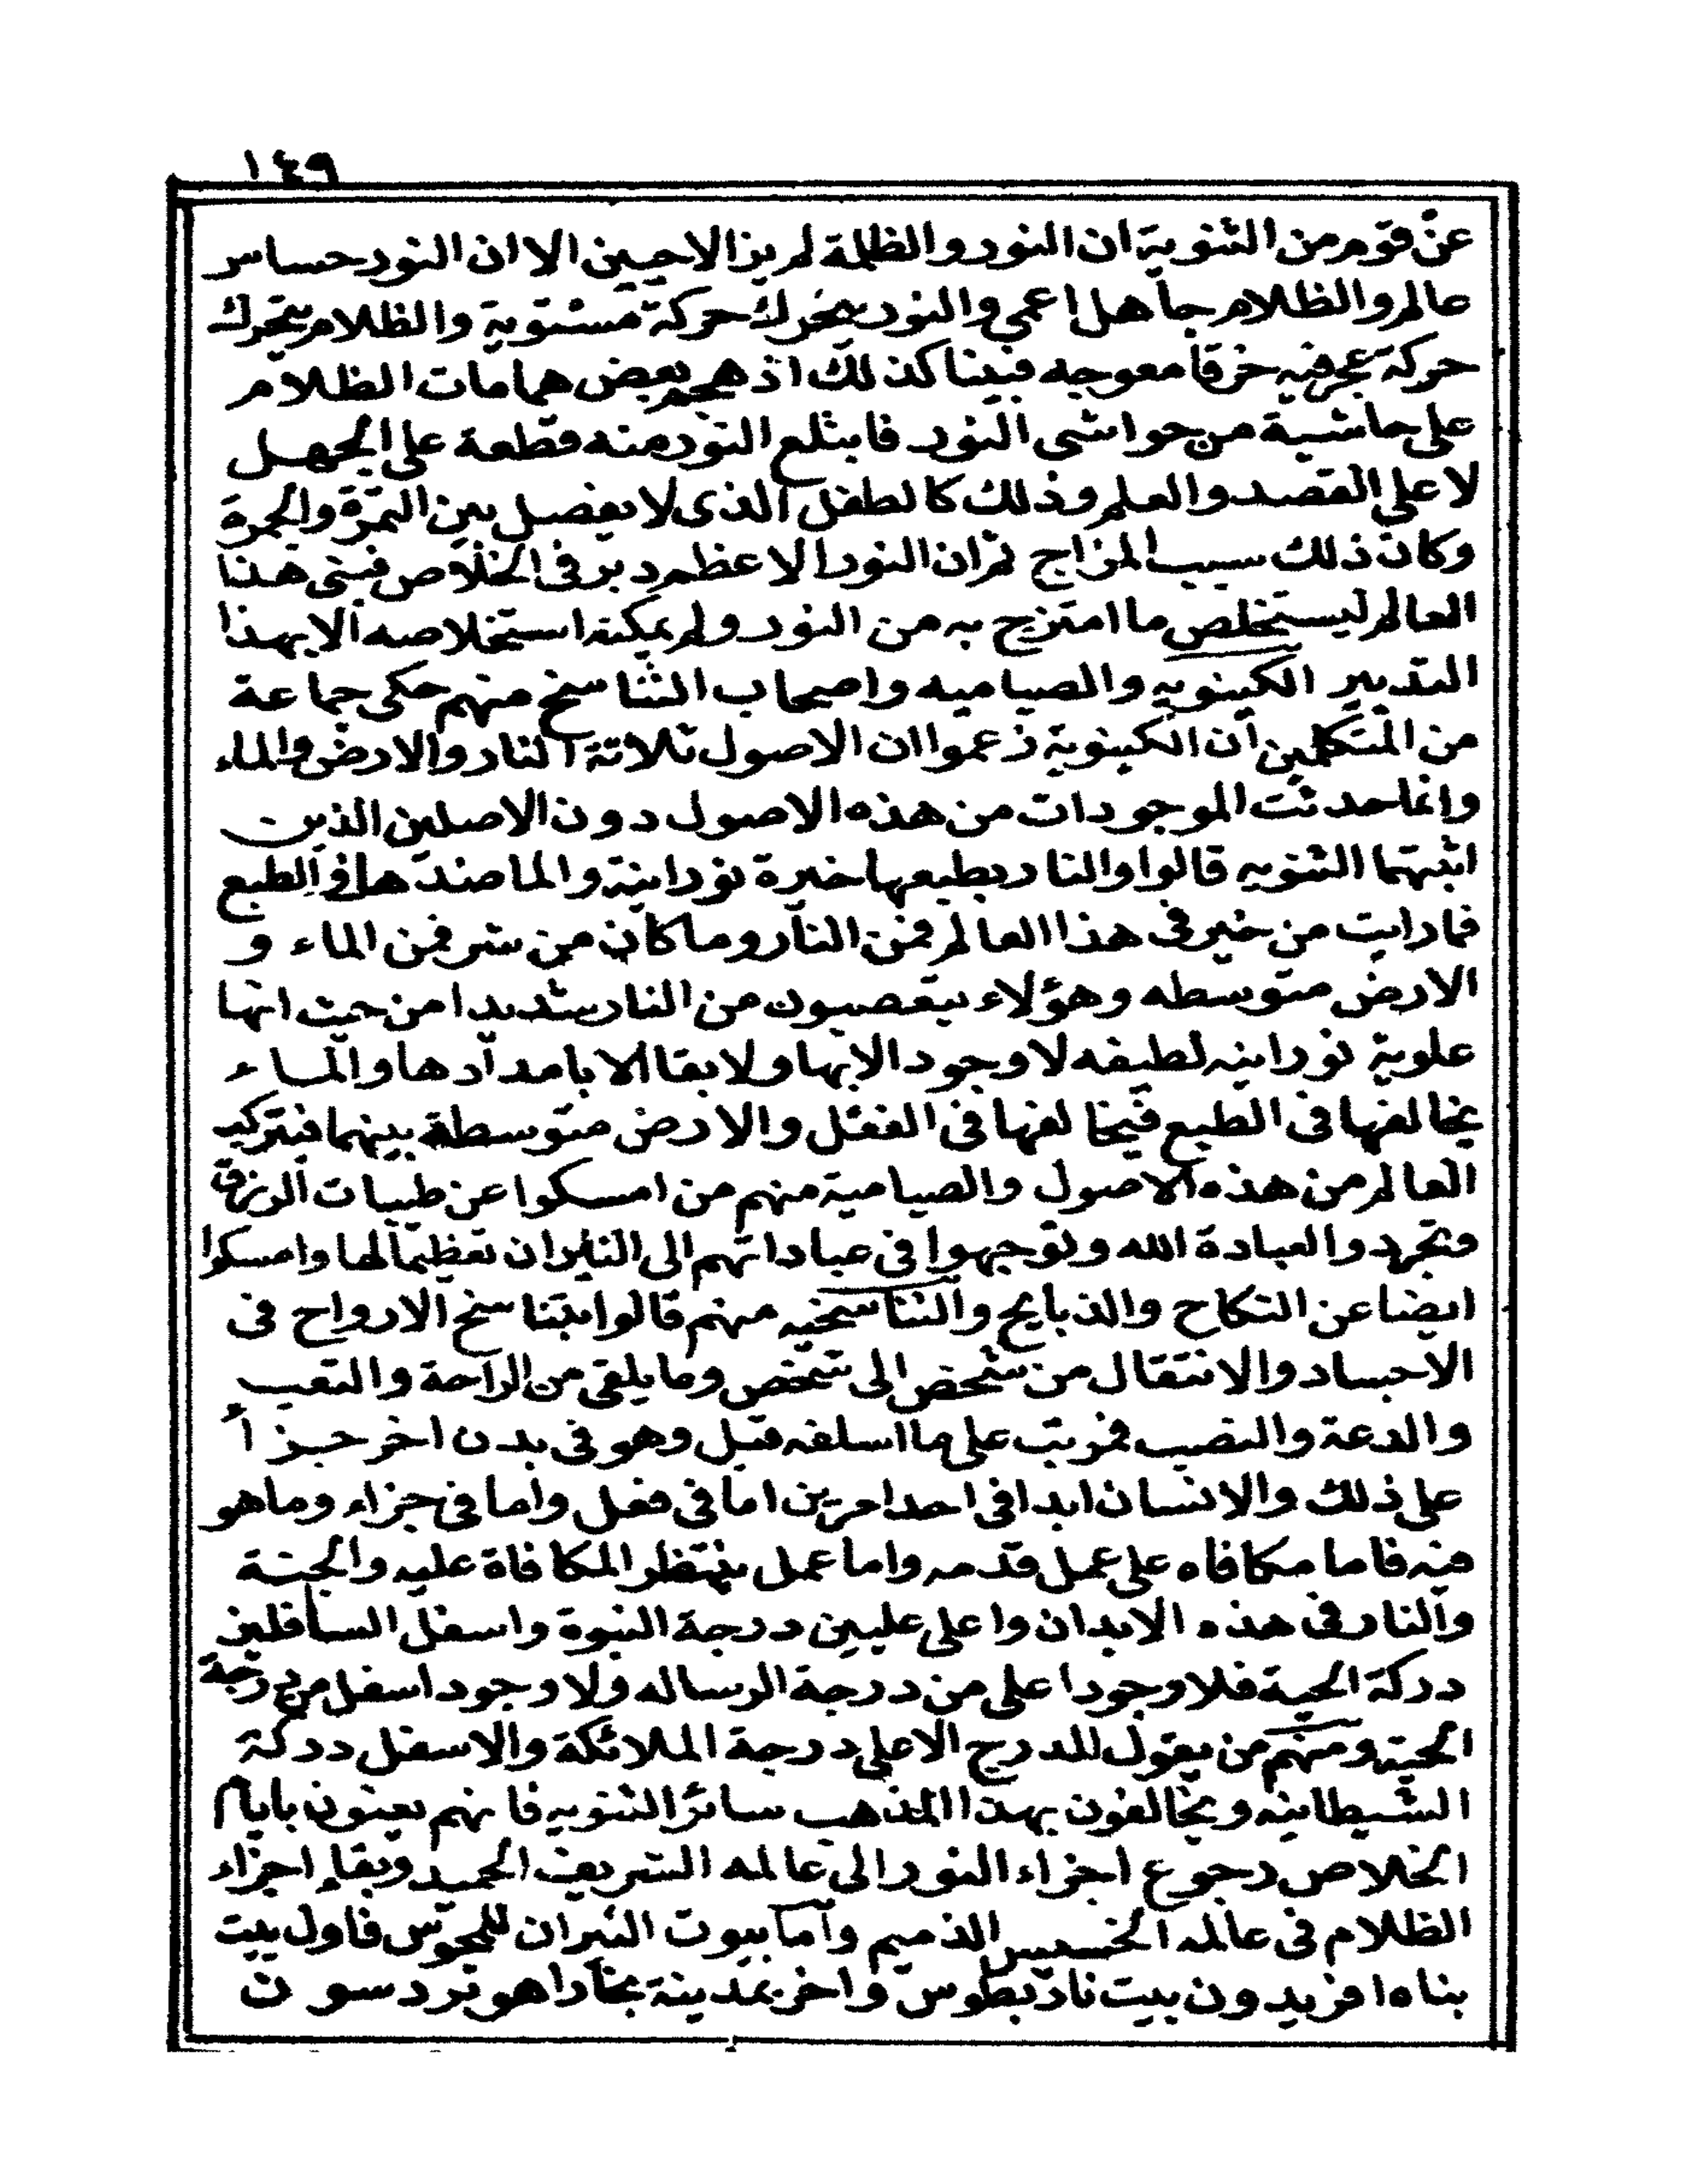 ١٤٩
عن قوم من الثنوية ان النور والظلمة لم يزالا حيين الا ان النور حساس
عالم والظلام جاهل اعمى والنور يتحرك حركة مستوية والظلام يتحرك
حركة عجرفيه خرقا معوجه فبينا كذلك اذ هجم بعض همامات الظلام
على حاشية من حواشى النور فابتلع النور منه قطعة على الجهل
لا على القصد والعلم وذلك كالطفل الذى لا يفصل بين التمرة والجمرة
وكان ذلك سبب المزاج ثم ان النور الاعظم دبر فى الخلاص فبنى هذا
العالم ليستخلص ما امتزج به من النور ولم يمكنه استخلاصه الا بهذا
التدبير الكينويه والصياميه واصحاب التناسخ منهم حكى جماعة
من المتكلمين ان الكينوية زعموا ان الاصول ثلاثة النار والارض والماء
وانما حدثت الموجودات من هذه الاصول دون الاصلين الذين
اثبتهما الثنويه قالوا والنار بطبعها خيرة نورانية والما ضدها فى الطبع
فما رايت من خير فى هذا العالم فمن النار وما كان من شر فمن الماء و
الارض متوسطه وهؤلاء يتعصبون من النار شديدا من حيث انها
علوية نورانيه لطيفه لا وجود الا بها ولا بقا الا بامدادها والماء
يخالفها فى الطبع فيخالفها فى الفعل والارض متوسطة بينهما فيتركب
العالم من هذه الاصول والصيامية منهم من امسكوا عن طيبات الرزق
وتجردوا لعبادة الله وتوجهوا فى عباداتهم الى النايران تعظيما لها وامسكوا
ايضا عن النكاح والذبايح والتناسخيه منهم قالوا بتناسخ الارواح فى
الاجساد والانتقال من شخص الى شخص وما يلقى من الراحة والتعب
والدعة والنصب فمرتب على ما اسلفه قبل وهو فى بدن اخر جزأ
على ذلك والانسان ابدا فى احد امرين اما فى فعل واما فى جزاء وما هو
فيه فاما مكافاه على عمل قدمه واما عمل ينتظر المكافاة عليه والجنة
والنار فى هذه الابدان واعلى عليين درجة النبوة واسفل السافلين
دركة الحية فلا وجود اعلى من درجة الرساله ولا وجود اسفل من درجة
الحية ومنهم من يقول للدرج الاعلى درجة الملائكة والاسفل دركة
الشيطانيه ويخالفون بهذا المذهب سائر الثنويه فانهم يعنون بايام
الخلاص رجوع اجزاء النور الى عالمه الشريف الحميد وبقاء اجزاء
الظلام فى عالمه الخسيس الذميم واما بيوت النيران للمجوس فاول بيت
بناه افريدون بيت نار بطوس واخر بمدينة بخارا هو بردسون